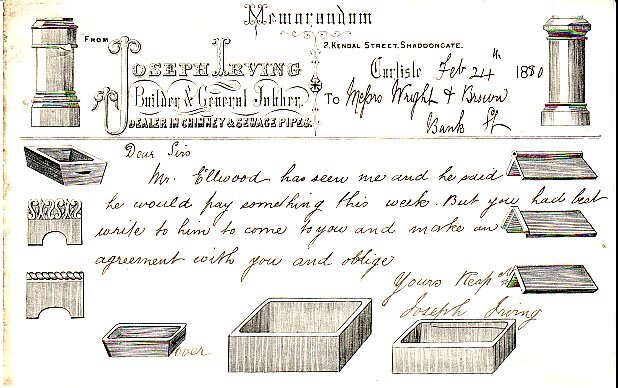 Memorandum
FROM
JOSEPH IRVING
Builder & General Jobber,
DEALER IN CHIMNEY & SEWAGE PIPES.
2, KENDAL STREET, SHADDONGATE.
Carlisle Feb 24th 1880
To Messrs Wright & Brown
Bank St
Dear Sirs
Mr. Ellwood has seen me and he said
he would pay something this week. But you had best
write to him to come to you and make an
agreement with you and oblige
Yours Resp
Joseph Irving
over